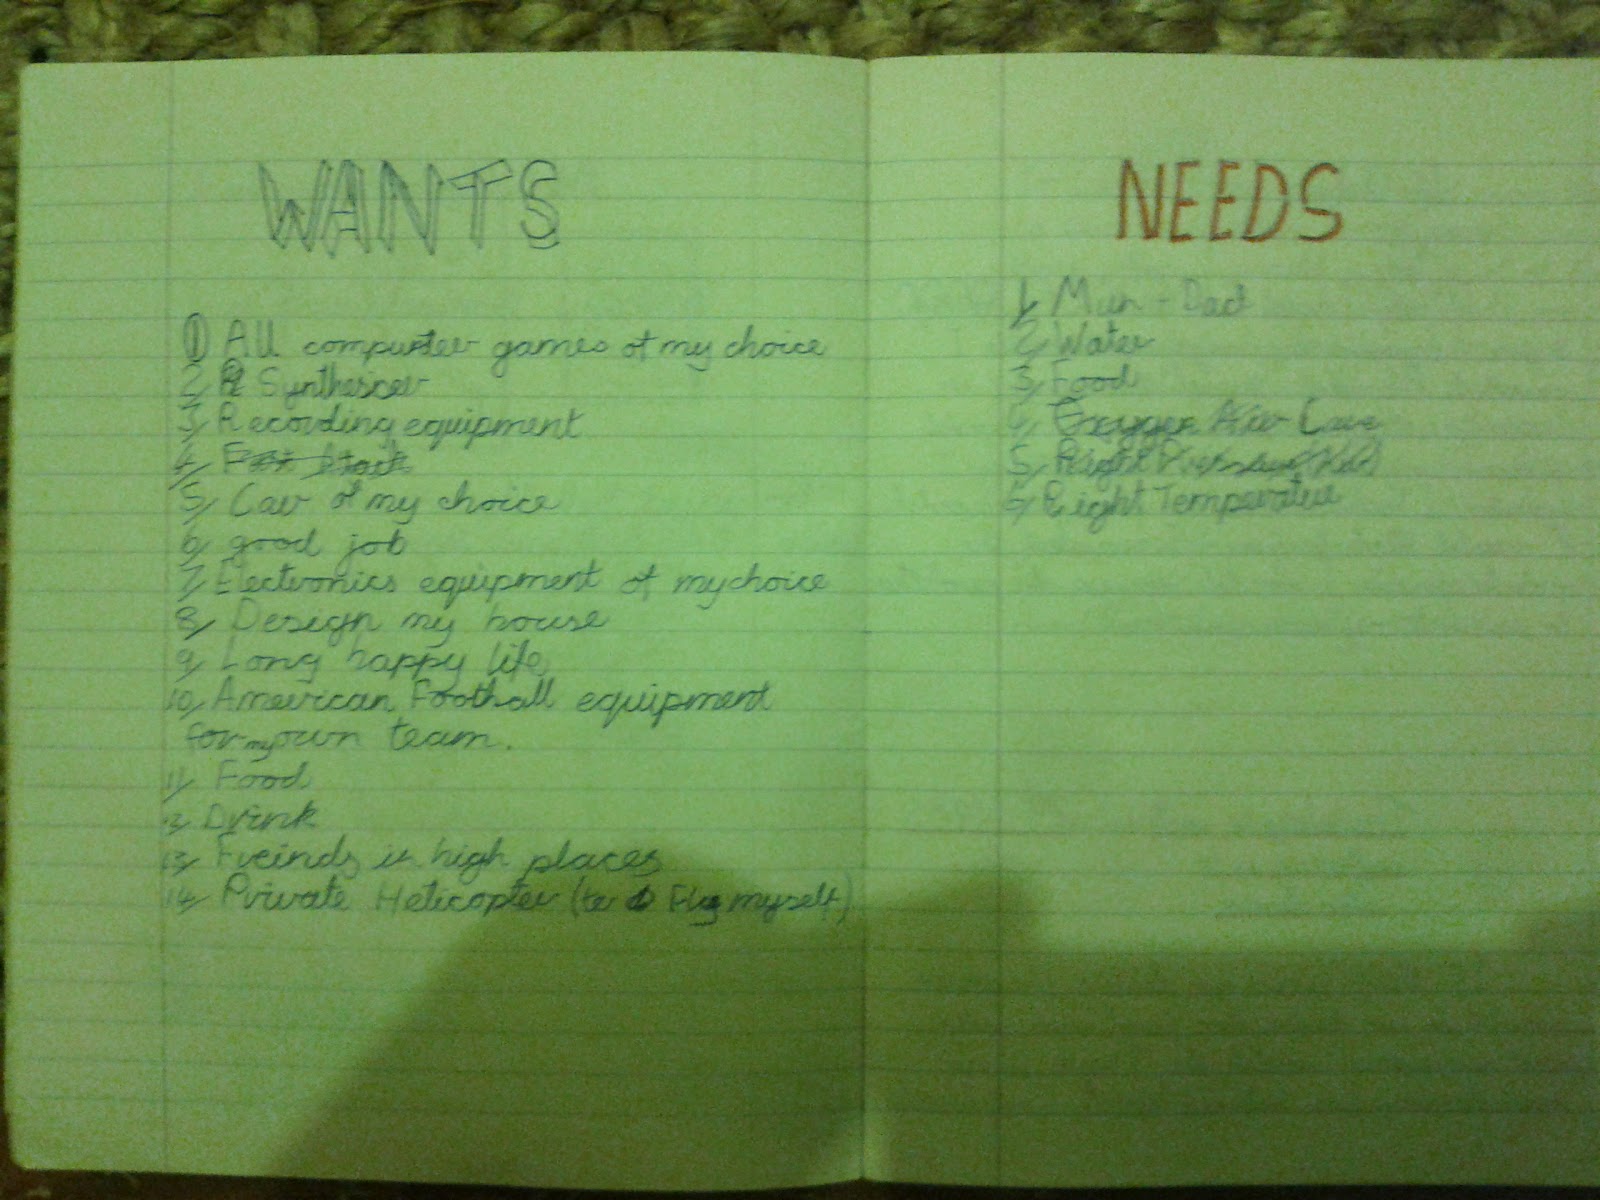 WANTS
1) All computer games of my choice
2, A Synthesiser
3, Recording equipment
4,
5, Car of my choice
6, good job
7, Electronics equipment of my choice
8, Design my house
9, Long happy life
10, American Football equipment
for my own team.
11, Food
12, Drink
13, Freinds in high places
14, Private Helicopter (to Fly myself)
NEEDS
1, Mum - Dad
2, Water
3, Food
4, Air Love
5, Right
6, Right Temperature